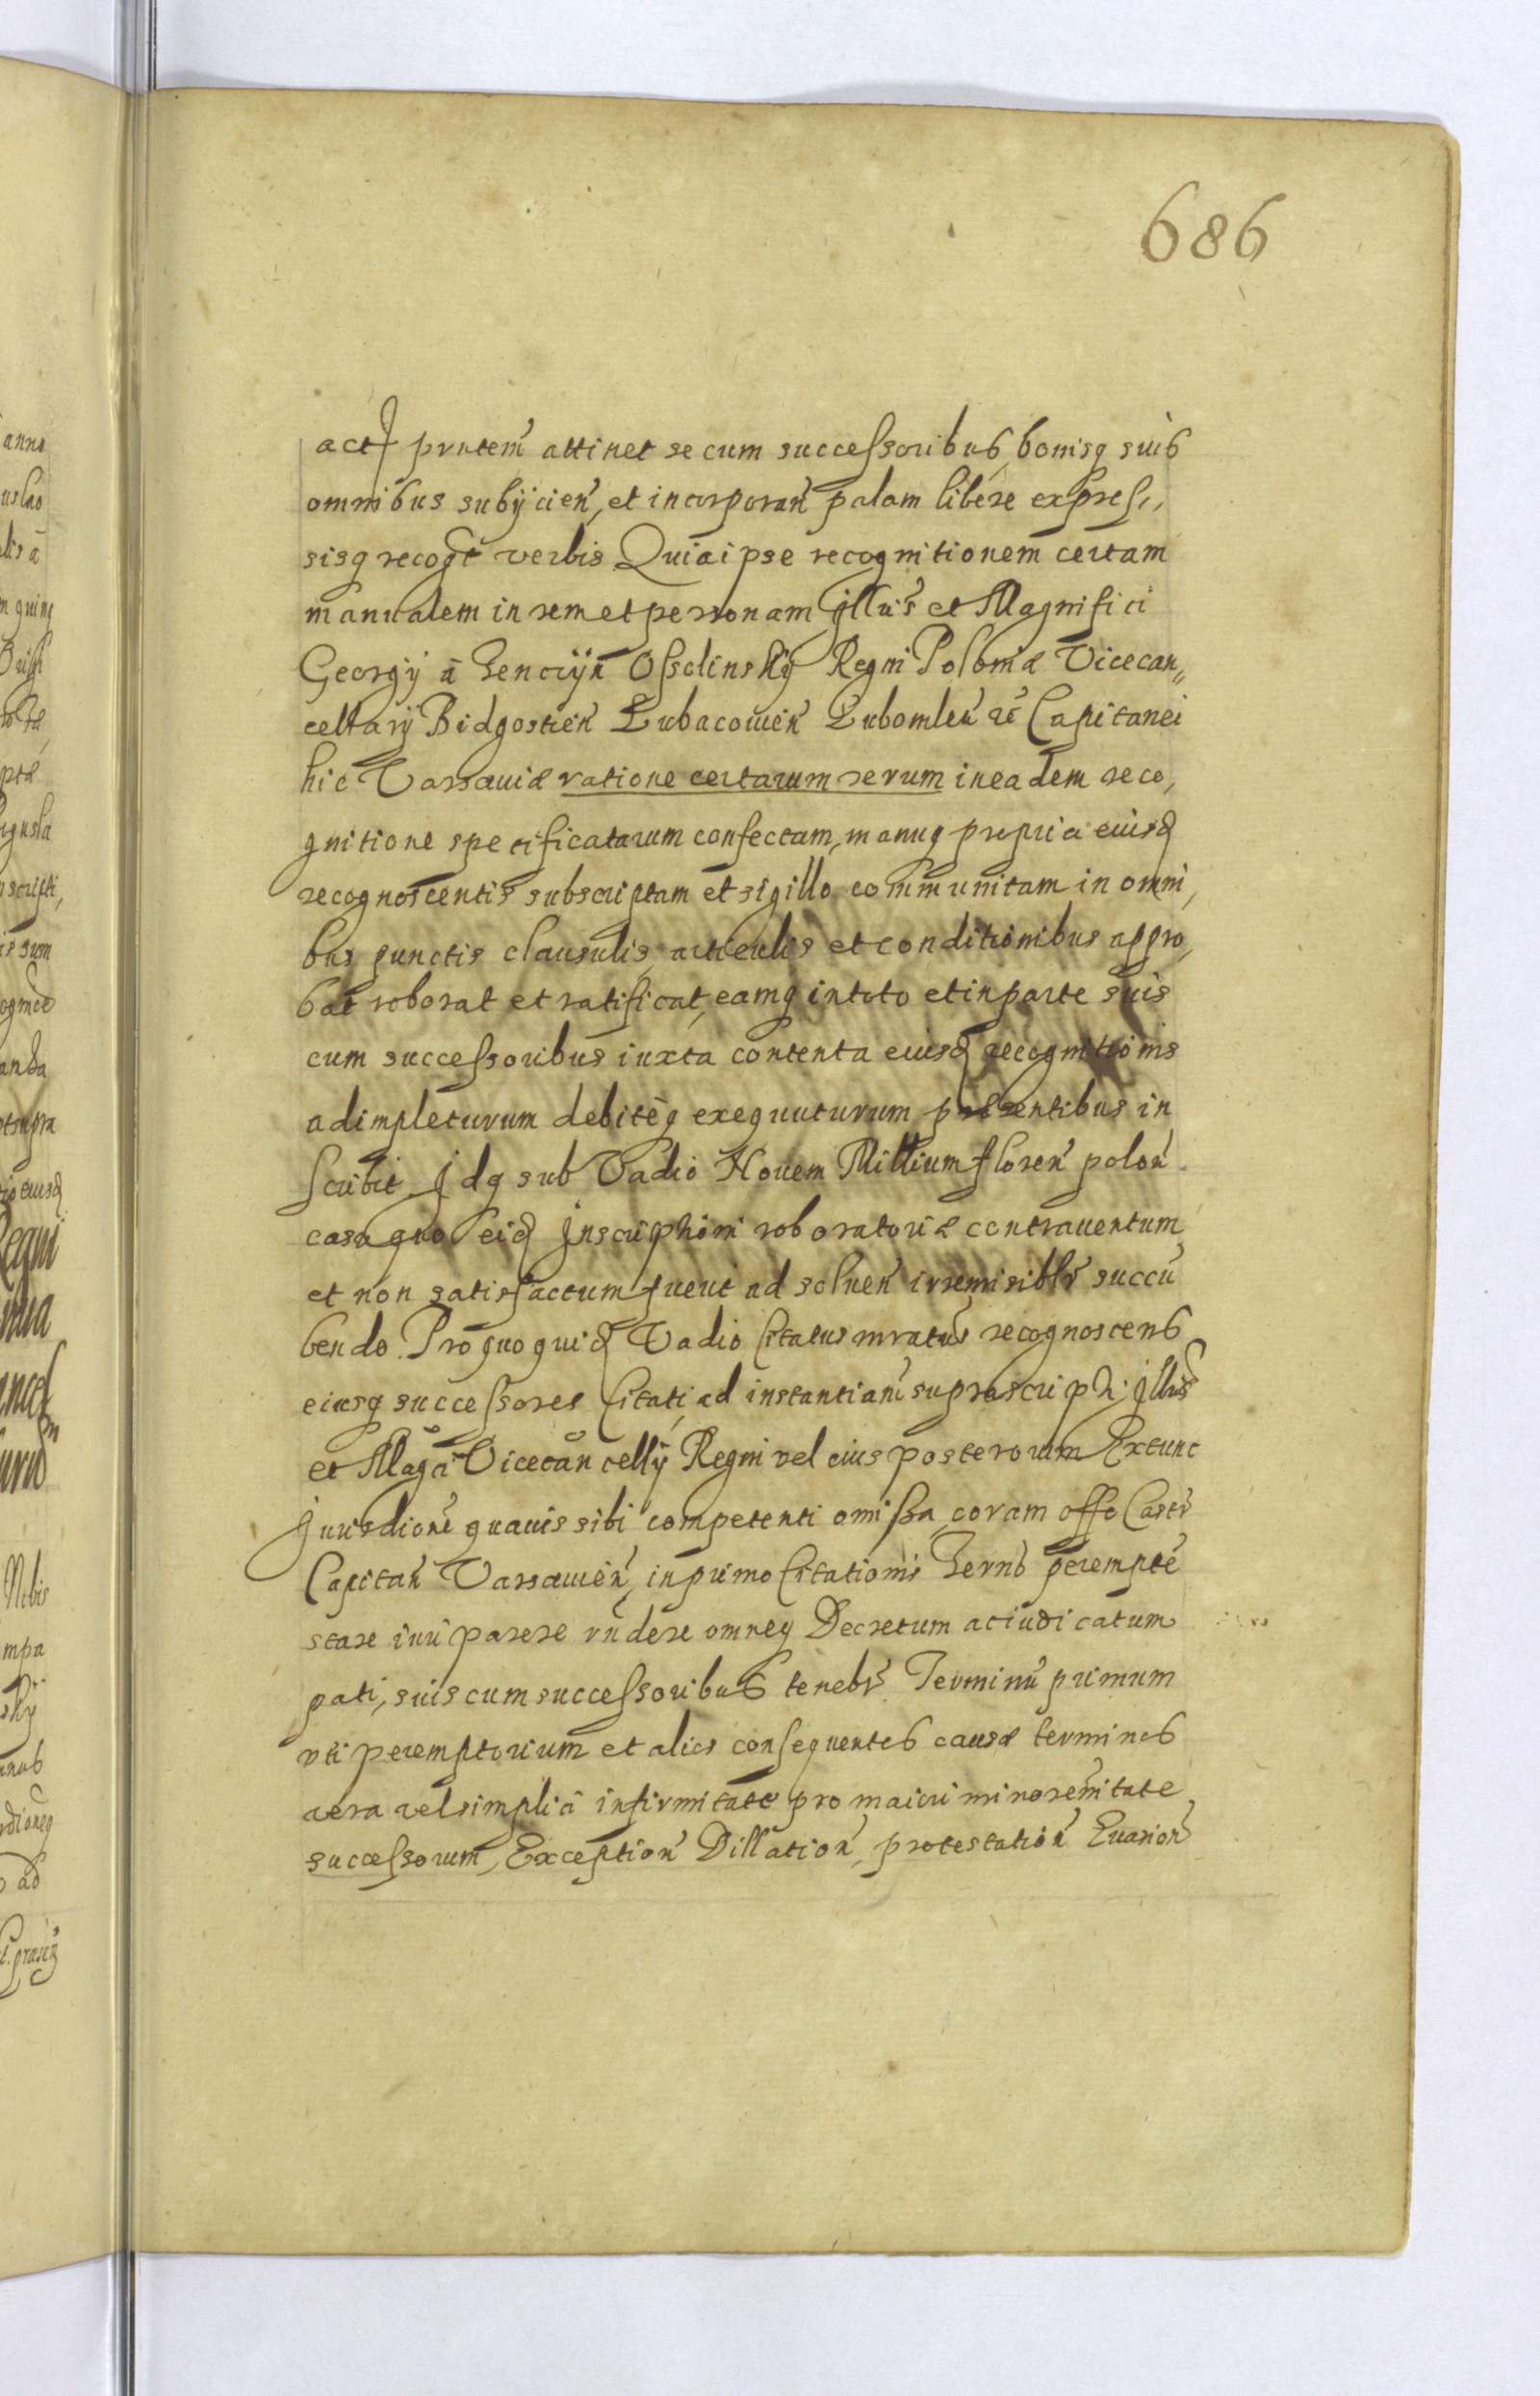 686
actꝭ prntem̃ attinet se cum successoribus, bonisq suis
omnibus subijcień, et incorporań palam libere expres,,
sisq recogt̃ verbis Quia ipse recognitionem certam
manualem in rem et personam Illu̇s et Magnifici
Georgij a Tenczyń Ossolinskÿ Regni Poloniæ Vicecan,,
cellarij Bidgostień Lubacowień Lubomleń &c Capitanei
hic Varsauiæ ratione certarum rerum in eadem reco,
gnitione specificatarum confectam, manuq propria eiusd
recognoscentis subscriptam et sigillo communitam in omni,
bus punctis clausulis, articulis et conditionibus appro,
bat roborat et ratificat, eamq in toto et in parte suis
cum successoribus iuxta contenta eiusd recognitionis
adimpleturum debitèq exequuturum præsentibus in
scribit Idq sub Vadio Nouem Millium floreń poloń
casu quo eid Inscriptioni roboratoriæ contrauentum
et non satisfactum fuerit ad soluen̄ irremisiblr̃ succū
bendo. Pro quo quid Vadio Citatus mratus recognoscens
eiusq successores Citati, ad instantiam suprascripti Illus
et Magci Vicecancellÿ Regni vel eius posterorum Extunc
Jurisdione quauis sibi competenti omissa, coram offo Castr̃
Capitań Varsauień, in primo Citationis Terno perempte
stare iuri parere rn̄dere omneq Decretum adiudicatum
pati, suis cum successoribus tenebr̃. Terminū primum
vti peremptorium et alios consequentes causæ terminos
vera vel simplici infirmitate pro maiori minoremitate
successorum, Exceptioń Dillatioń, protestatioń Euasioń